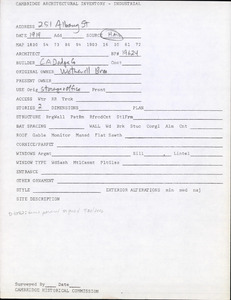 CAMBRIDGE ARCHITECTURAL INVENTORY - INDUSTRIAL
ADDRESS 251 Albany St
DATE 1919 AAA SOURCE
MAP 1830 54 73 86 94 1903 16 30 61 71
ARCHITECT BP# 19624
BUILDER C.A. Dodge Co Cost
ORIGINAL OWNER Wetherell Bros
PRESENT OWNER
USE Orig Storage+office Present
ACCESS Wtr RR Truk
STORIES 2 DIMENSIONS PLAN
STRUCTURE BrgWall PstBm AfrdCct StlFrm
BAY SPACING WALL Wd Brk Stuc Corgl Alm Cct
ROOF Gable Monitor Mansd Flat Sawt
CORNICE/PROFIT
WINDOWS Arrgmt Sill Lintel
WINDOW TYPE WdSash MtlCsmnt FlrSlvn
ENTRANCE
OTHER ORNAMENT
STYLE EXTERIOR ALTERATIONS min mod maj
Surveyed By Date
CAMBRIDGE HISTORICAL COMMISSION